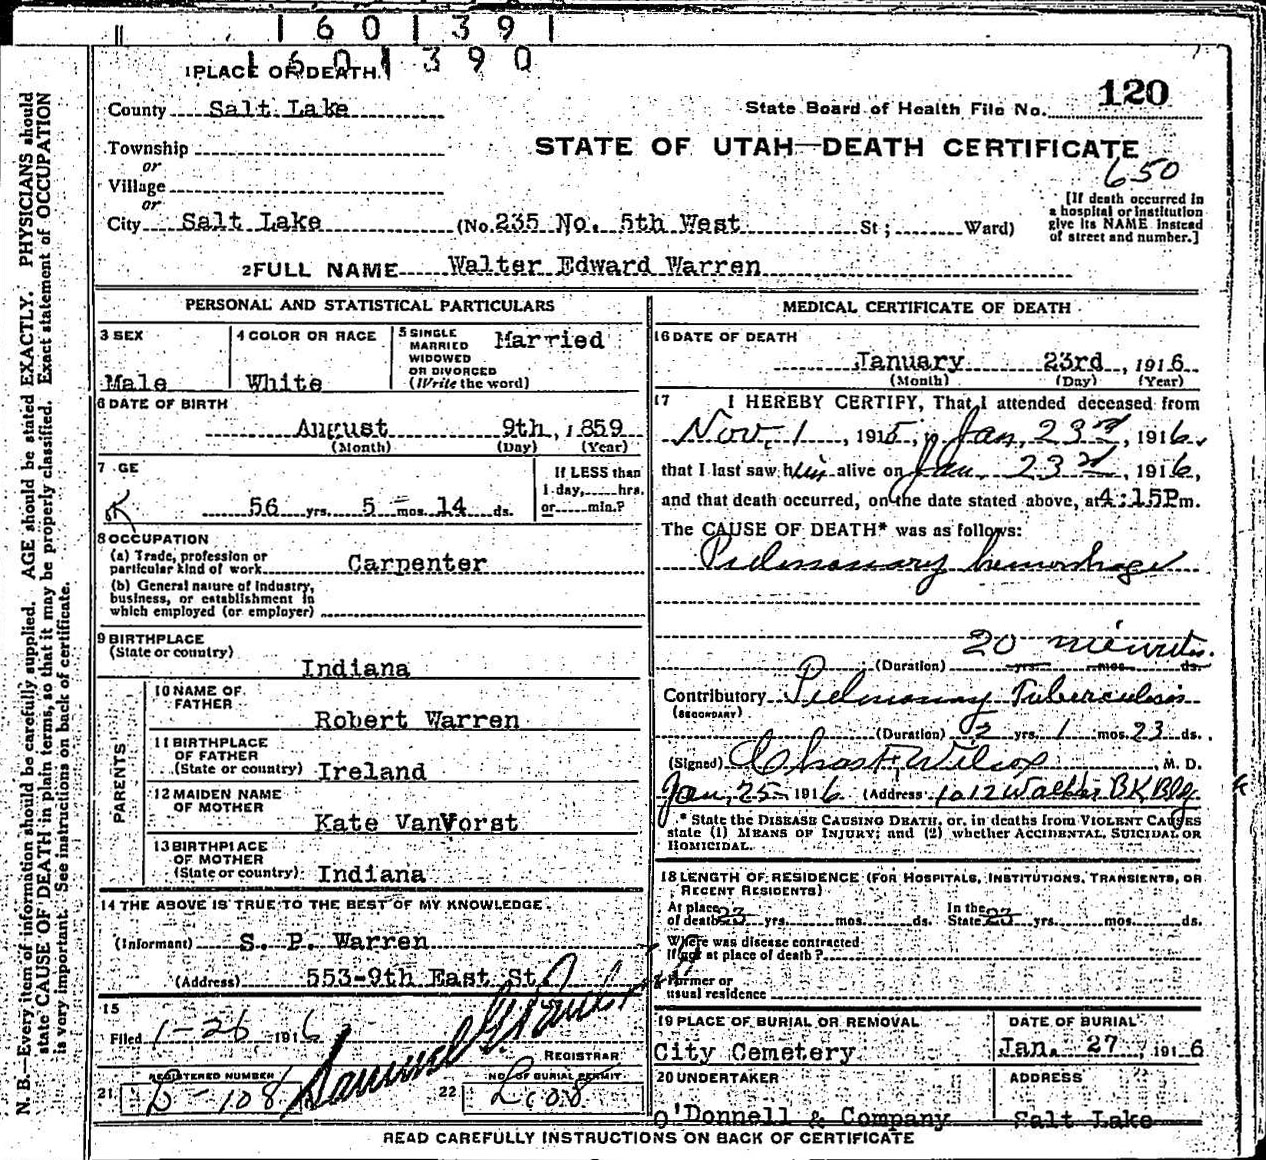 1 6 0 1 3 9 1
1 6 0 1 3 9 0
1 PLACE OF DEATH
County Salt Lake
State Board of Health File No. 120
Township
or
Village
or
STATE OF UTAH—DEATH CERTIFICATE
650
City Salt Lake (No. 235 No. 5th West St; Ward)
[If death occurred in
a hospital or institution
give its NAME instead
of street and number.]
2 FULL NAME Walter Edward Warren
PERSONAL AND STATISTICAL PARTICULARS
3 SEX
Male
4 COLOR OR RACE
White
5 SINGLE
MARRIED
WIDOWED
OR DIVORCED
(Write the word)
Married
6 DATE OF BIRTH
August 9th, 1859
(Month) (Day) (Year)
7 GE
56 yrs. 5 mos. 14 ds.
If LESS than
1 day, hrs.
or min.?
8 OCCUPATION
(a) Trade, profession or
particular kind of work Carpenter
(b) General nature of industry,
business, or establishment in
which employed (or employer)
9 BIRTHPLACE
(State or country)
Indiana
PARENTS
10 NAME OF
FATHER
Robert Warren
11 BIRTHPLACE
OF FATHER
(State or country) Ireland
12 MAIDEN NAME
OF MOTHER
Kate VanVorst
13 BIRTHPLACE
OF MOTHER
(State or country) Indiana
14 THE ABOVE IS TRUE TO THE BEST OF MY KNOWLEDGE.
(Informant) S. P. Warren
(Address) 553-9th East St
15
Filed 1-26 1916
Samuel G.
REGISTRAR
REGISTERED NUMBER
21 B-108
NO. OF BURIAL PERMIT
22
MEDICAL CERTIFICATE OF DEATH
16 DATE OF DEATH
January 23rd, 1916
(Month) (Day) (Year)
17 I HEREBY CERTIFY, That I attended deceased from
Nov. 1, 1915, to Jan. 23rd, 1916,
that I last saw him alive on Jan. 23rd, 1916,
and that death occurred, on the date stated above, at 4:15Pm.
The CAUSE OF DEATH* was as follows:
Pulmonary hemorrhage
20 minutes.
(Duration) yrs. mos. ds.
Contributory Pulmonary Tuberculosis
(SECONDARY)
(Duration) 2 yrs. 1 mos. 23 ds.
(Signed) Chas F Wilcox, M. D.
Jan. 25 1916 (Address 1012 Walker BK Blg
* State the DISEASE CAUSING DEATH, or, in deaths from VIOLENT CAUSES
state (1) MEANS OF INJURY; and (2) whether ACCIDENTAL, SUICIDAL OR
HOMICIDAL.
18 LENGTH OF RESIDENCE (FOR HOSPITALS, INSTITUTIONS, TRANSIENTS, OR
RECENT RESIDENTS)
At place
of death 23 yrs. mos. ds.
In the
State 23 yrs. mos. ds.
Where was disease contracted
If not at place of death?
Former or
usual residence
19 PLACE OF BURIAL OR REMOVAL
City Cemetery
DATE OF BURIAL
Jan. 27, 1916
20 UNDERTAKER
O'Donnell & Company
ADDRESS
Salt Lake
READ CAREFULLY INSTRUCTIONS ON BACK OF CERTIFICATE
N. B.—Every item of information should be carefully supplied. AGE should be stated EXACTLY. PHYSICIANS should
state CAUSE OF DEATH in plain terms, so that it may be properly classified. Exact statement of OCCUPATION
is very important. See instructions on back of certificate.